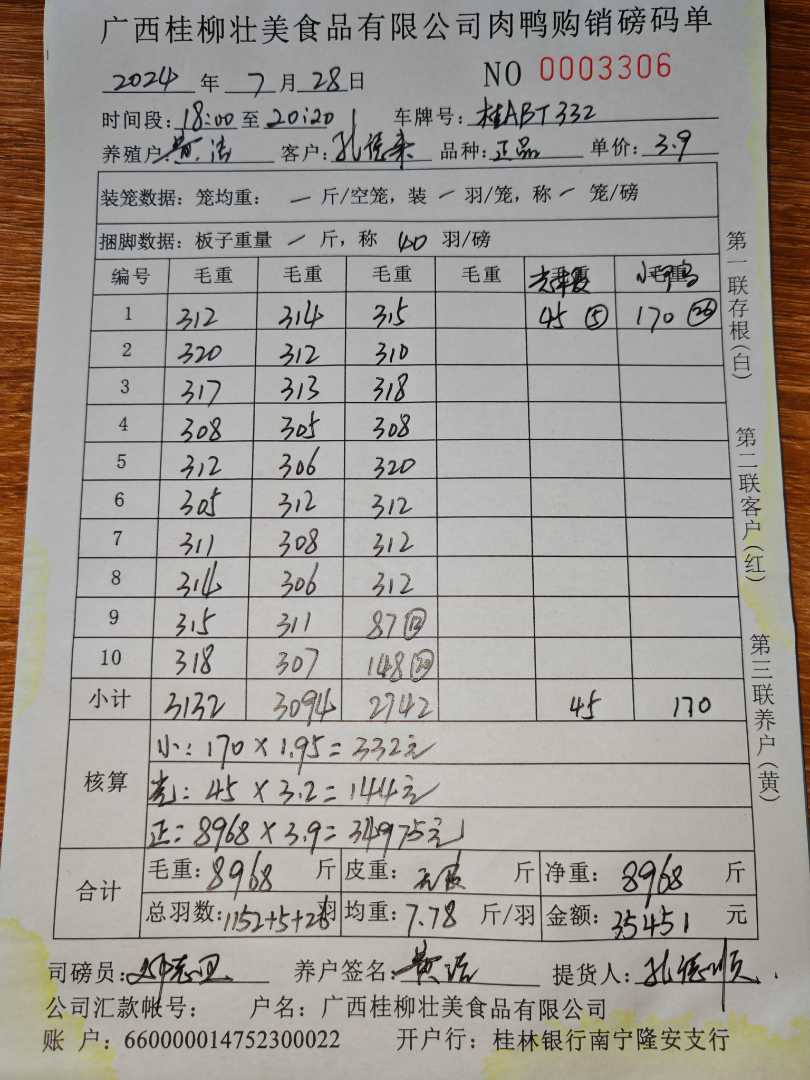 广西桂柳壮美食品有限公司肉鸭购销磅码单
2024 年 7 月 28 日 NO 0003306
时间段: 18:00 至 20:20 车牌号: 桂ABT332
养殖户: 黄洁 客户: 孔德来 品种: 正品 单价: 3.9
装笼数据: 笼均重: 一 斤/空笼, 装 一 羽/笼, 称 一 笼/磅
捆脚数据: 板子重量 一 斤, 称 40 羽/磅
编号 毛重 毛重 毛重 毛重 小毛鸭
1 312 314 315 45 ⑤ 170 ㉖
2 320 312 310
3 317 313 318
4 308 305 308
5 312 306 320
6 305 312 312
7 311 308 312
8 314 306 312
9 315 311 87 ⑬
10 318 307 148
小计 3132 3094 2742 45 170
核算
小: 170 × 1.95 = 332元
光: 45 × 3.2 = 144元
正: 8968 × 3.9 = 34975元
合计
毛重: 8968 斤 皮重: 斤 净重: 8968 斤
总羽数: 1152+5+26 羽 均重: 7.78 斤/羽 金额: 35451 元
司磅员: 养户签名: 黄洁 提货人: 孔德顺
公司汇款帐号: 户名: 广西桂柳壮美食品有限公司
账 户: 660000014752300022 开户行: 桂林银行南宁隆安支行
第一联存根(白)
第二联客户(红)
第三联养户(黄)